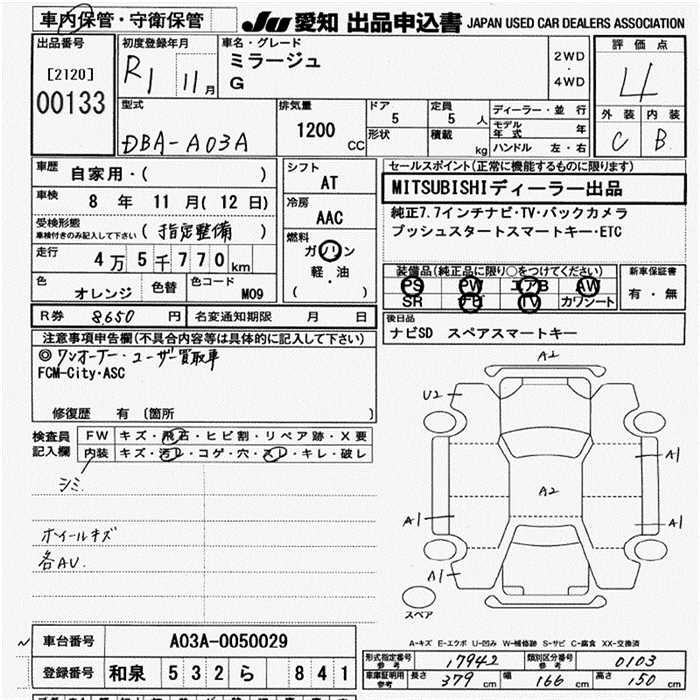 車内保管・守衛保管
JU 愛知 出品申込書 JAPAN USED CAR DEALERS ASSOCIATION
出品番号
[2120]
00133
初度登録年月
R1 11月
車名・グレード
ミラージュ
G
2WD
・
4WD
評価点
4
外装 内装
C B
型式
DBA-A03A
排気量
1200 CC
ドア
5
形状
定員
5 人
積載
kg
ディーラー・並行
モデル年式 年
ハンドル 左・右
車歴
自家用・( )
車検
8 年 11 月 (12 日)
受検形態
車検付きのみ記入して下さい
(指定整備)
走行
4万 5千 770 km
色
オレンジ
色替
色コード
M09
シフト
AT
冷房
AAC
燃料
ガソリン
軽・油
( )
セールスポイント(正常に機能するものに限ります)
MITSUBISHIディーラー出品
純正7.7インチナビ・TV・バックカメラ
プッシュスタートスマートキー・ETC
装備品(純正品に限り○をつけてください)
PS PW エアB AW
SR TV カワシート
新車保証書
有・無
R券 8,650 円
名変通知期限 月 日
後日品
ナビSD スペアスマートキー
注意事項申告欄(不具合内容等は具体的に記入して下さい)
◎ワンオーナー・ユーザー買取車
FCM-City・ASC
修復歴 有 [箇所 ]
検査員記入欄
FW キズ・飛石・ヒビ割・リペア跡・X要
内装 キズ・汚レ・コゲ・穴・スレ・キレ・破レ
シミ
ホイールキズ
各AU.
A2
U2
A1
A2
A1
A1
A1
スペア
A-キズ E-エクボ U-凹み W-補修跡 S-サビ C-腐食 XX-交換済
車台番号 A03A-0050029
登録番号 和泉 532 ら 841
型式指定番号
参考
17942
類別区分番号
参考
0103
車庫証明用
参考
長さ 379 cm 幅 166 cm 高さ 150 cm